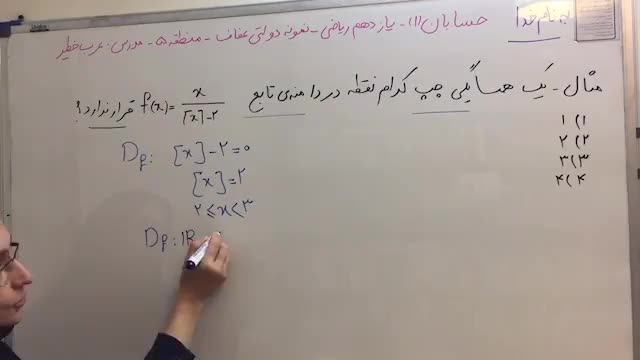 به نام خدا
حسابان (۱) - یازدهم ریاضی - نمونه دولتی عفاف - منطقه ۵ - مدرس: عرب خطیر
مثال - یک همسایگی چپ کدام نقطه در دامنه‌ی تابع f(x) = x / [x]-۲ قرار ندارد؟
۱) ۱
۲) ۲
۳) ۳
۴) ۴
Df: [x]-۲=۰
[x]=۲
۲≤x<۳
Df: IR -